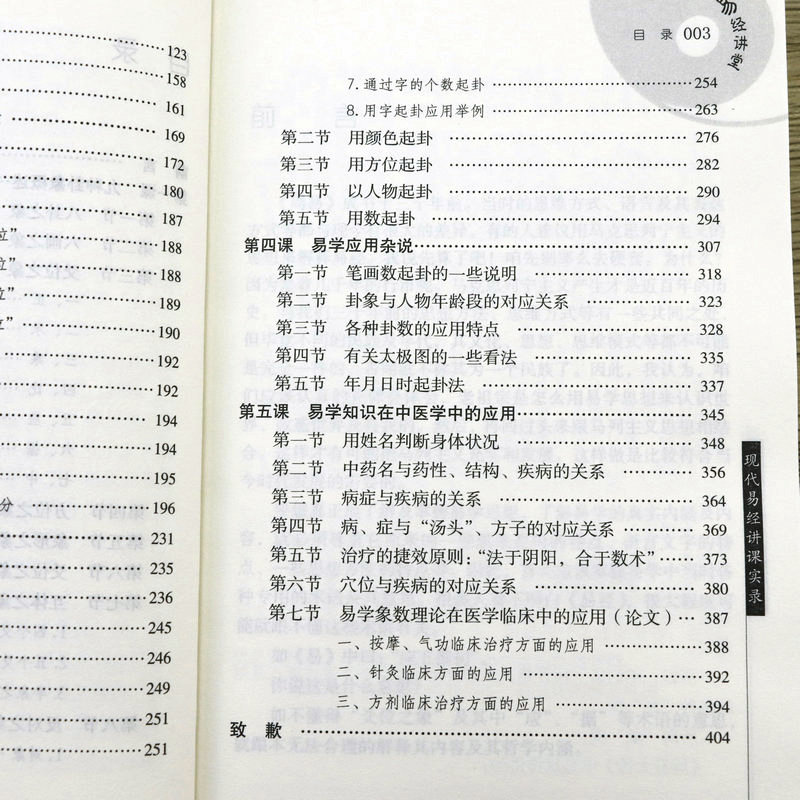 123
158
161
169
172
180
187
位” 188
位” 188
位” 189
位” 190
192
192
194
194
195
分 196
231
235
236
245
246
249
251
251
易经讲堂
目 录 003
7. 通过字的个数起卦 254
8. 用字起卦应用举例 263
第二节 用颜色起卦 276
第三节 用方位起卦 282
第四节 以人物起卦 290
第五节 用数起卦 294
第四课 易学应用杂说 307
第一节 笔画数起卦的一些说明 318
第二节 卦象与人物年龄段的对应关系 323
第三节 各种卦数的应用特点 328
第四节 有关太极图的一些看法 335
第五节 年月日时起卦法 337
第五课 易学知识在中医学中的应用 345
第一节 用姓名判断身体状况 348
第二节 中药名与药性、结构、疾病的关系 356
第三节 病症与疾病的关系 364
第四节 病、症与“汤头”、方子的对应关系 369
第五节 治疗的捷效原则：“法于阴阳，合于数术” 373
第六节 穴位与疾病的对应关系 380
第七节 易学象数理论在医学临床中的应用（论文） 387
一、按摩、气功临床治疗方面的应用 388
二、针灸临床方面的应用 392
三、方剂临床治疗方面的应用 394
致 歉 404
现代易经讲课实录